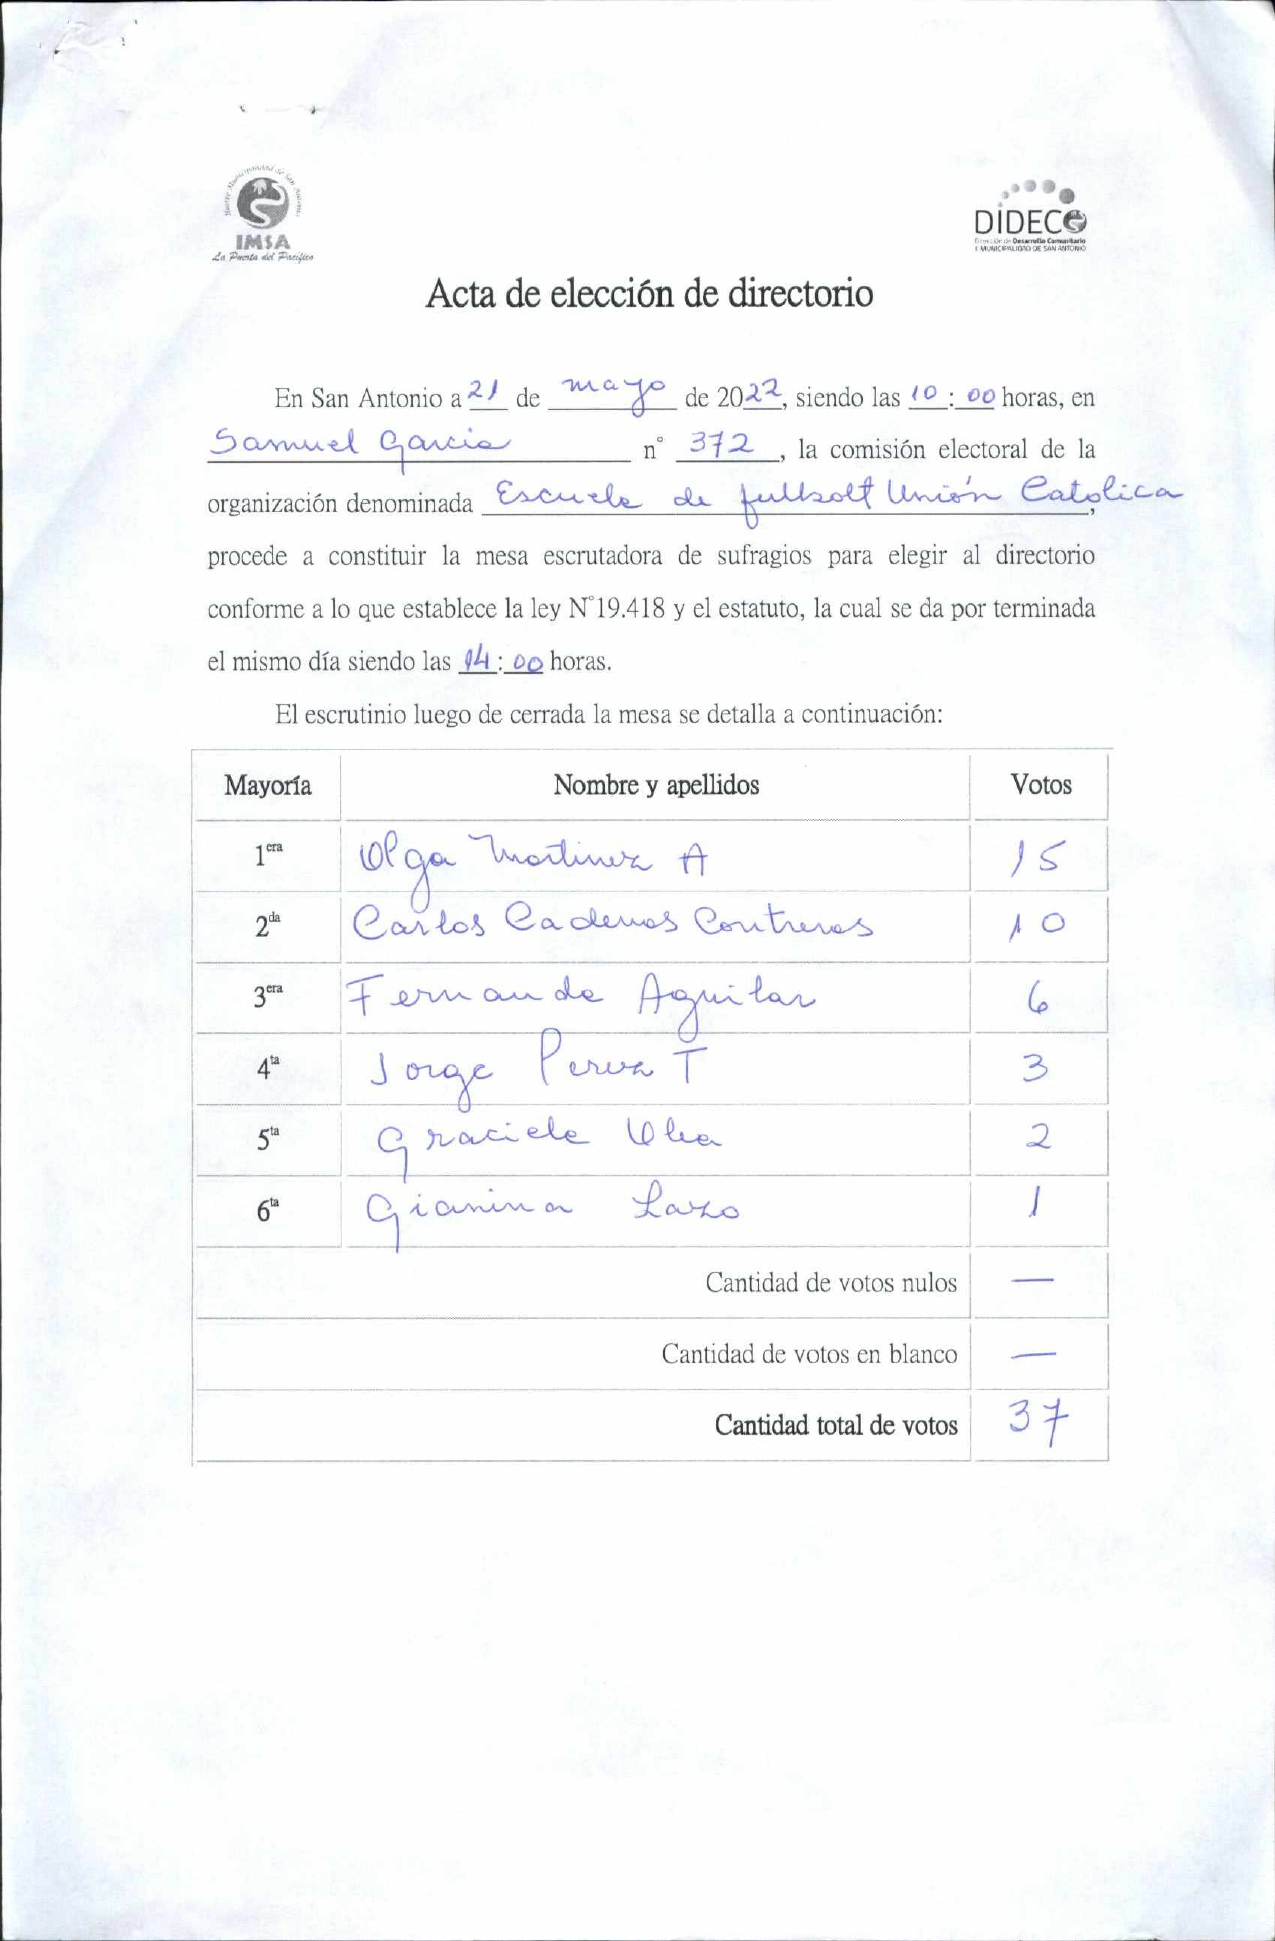 Ilustre Municipalidad de San Antonio
IMSA
La Puerta del Pacífico
DIDECO
Dirección de Desarrollo Comunitario
I. MUNICIPALIDAD DE SAN ANTONIO
Acta de elección de directorio
En San Antonio a 21 de mayo de 2022, siendo las 10:00 horas, en
Samuel Garcia n° 372, la comisión electoral de la
organización denominada Escuela de fullsolt Unión Catolica,
procede a constituir la mesa escrutadora de sufragios para elegir al directorio
conforme a lo que establece la ley N°19.418 y el estatuto, la cual se da por terminada
el mismo día siendo las 14:00 horas.
El escrutinio luego de cerrada la mesa se detalla a continuación:
Mayoría Nombre y apellidos Votos
1era Olga Martinez A 15
2da Carlos Cadenas Contreras 10
3era Fernanda Aguilar 6
4ta Jorge T 3
5ta Graciela 2
6ta Gianina Lazo 1
Cantidad de votos nulos —
Cantidad de votos en blanco —
Cantidad total de votos 37